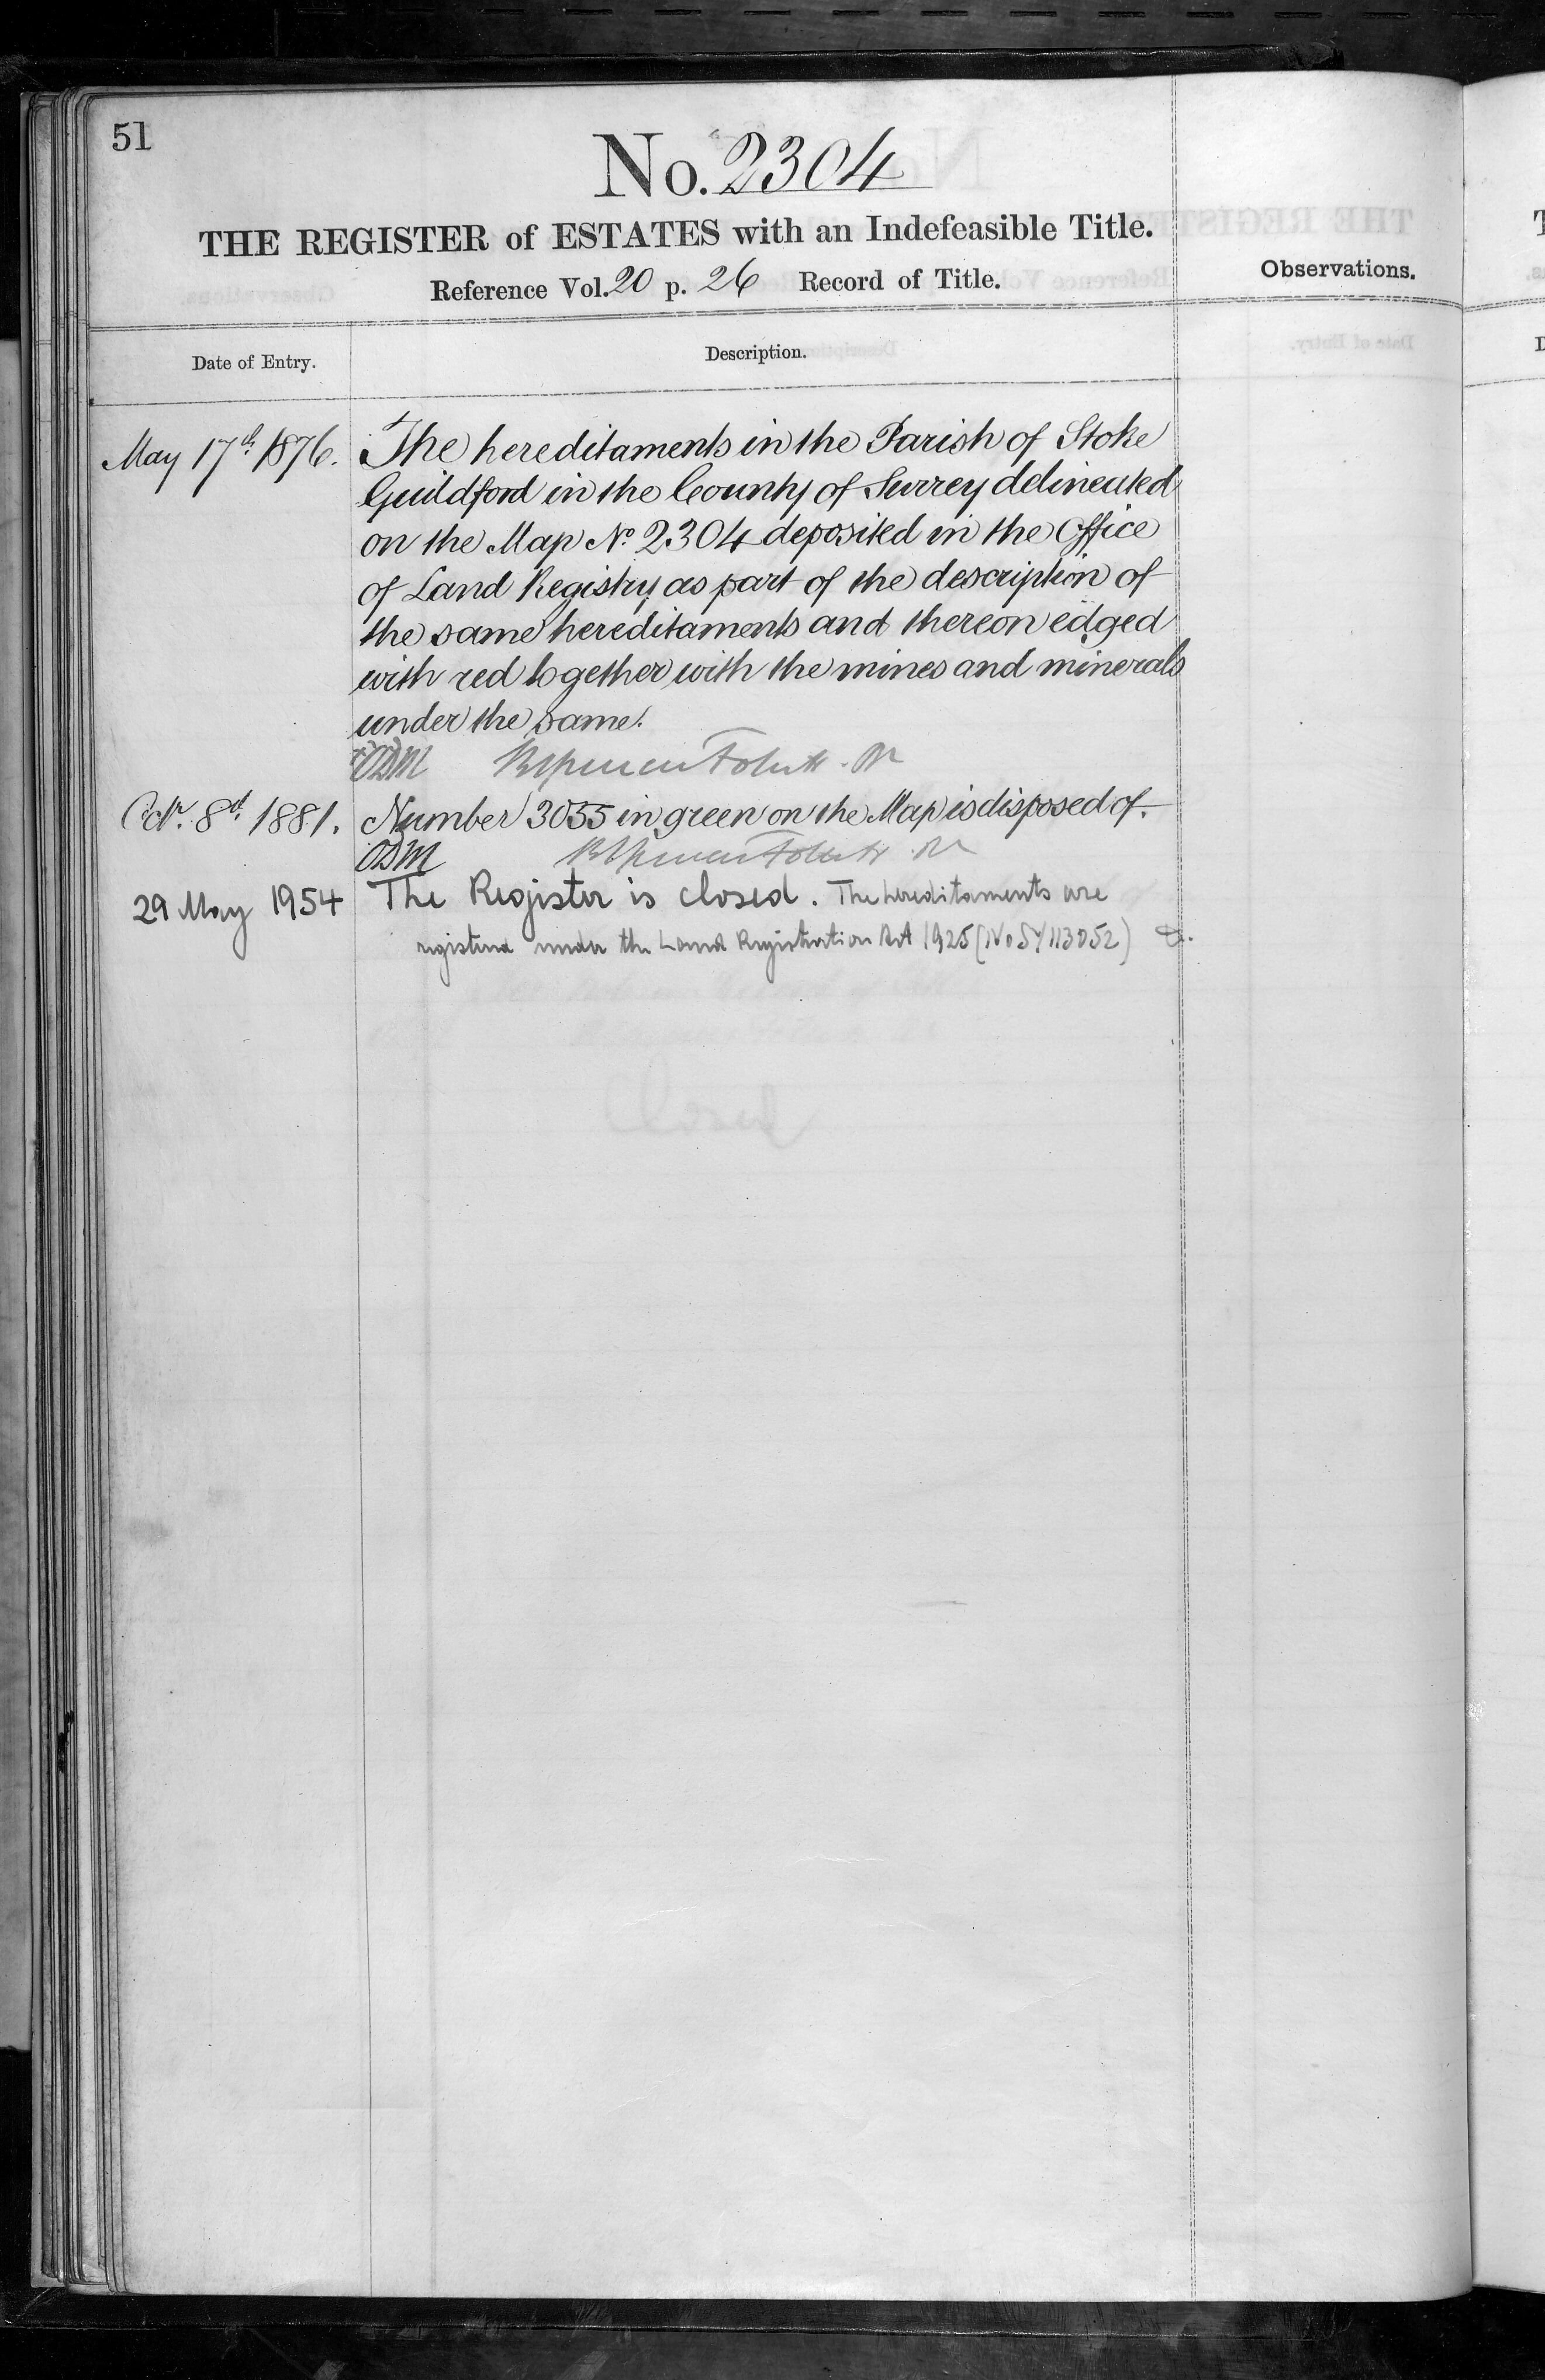 51
No. 2304
THE REGISTER of ESTATES with an Indefeasible Title.
Reference Vol. 20 p. 26 Record of Title.
Observations.
Date of Entry.
Description.
May 17th 1876. The hereditaments in the Parish of Stoke
Guildford in the County of Surrey delineated
on the Map No. 2304 deposited in the Office
of Land Registry as part of the description of
the same hereditaments and thereon edged
with red together with the mines and minerals
under the same.
Octr. 8th 1881. Number 3035 in green on the Map is disposed of.
29 May 1954 The Register is closed. The hereditaments are
registered under the Land Registration Act 1925 (No SY113052)
Closed